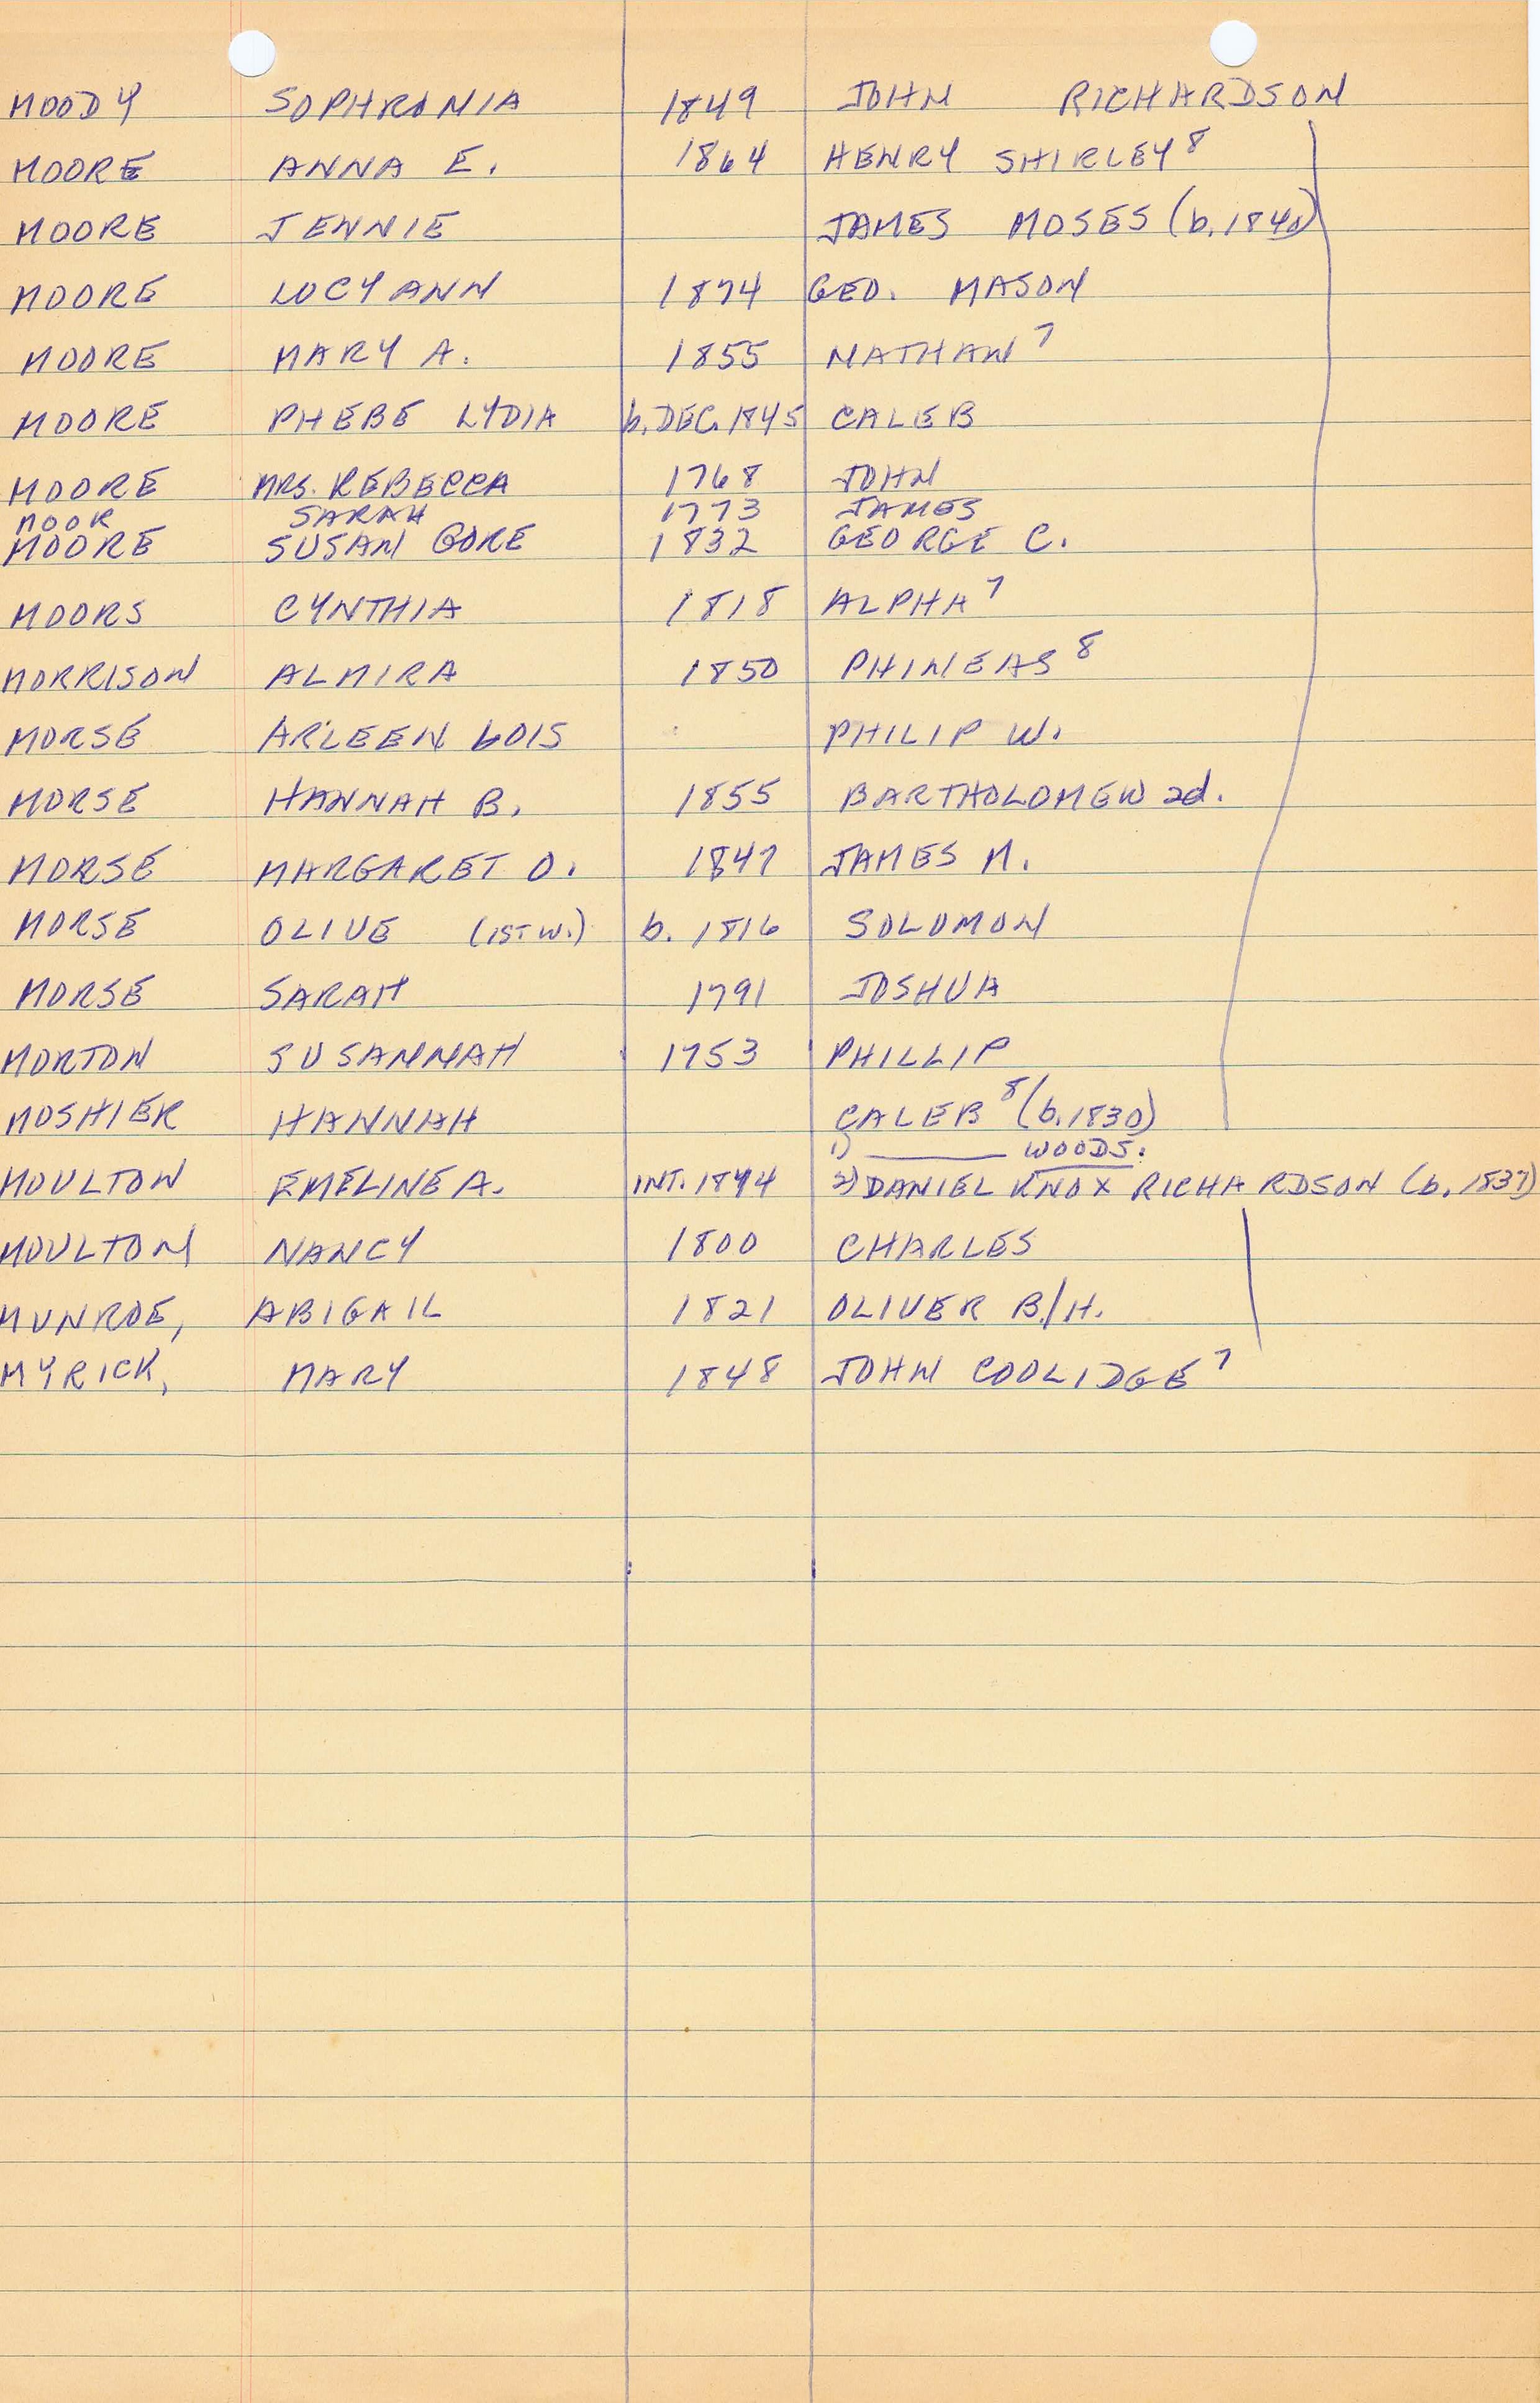 MOODY SOPHRONIA 1849 JOHN RICHARDSON
MOORE ANNA E. 1864 HENRY SHIRLEY⁸
MOORE JENNIE JAMES MOSES (b. 1840)
MOORE LUCY ANN 1874 GEO. MASON
MOORE MARY A. 1855 NATHAN⁷
MOORE PHEBE LYDIA b. DEC. 1845 CALEB
MOORE MRS. REBECCA 1768 JOHN
MOOR SARAH 1773 JAMES
MOORE SUSAN GORE 1832 GEORGE C.
MOORS CYNTHIA 1818 ALPHA⁷
MORRISON ALMIRA 1850 PHINEAS⁸
MORSE ARLEEN LOIS PHILIP W.
MORSE HANNAH B. 1855 BARTHOLOMEW 2d.
MORSE MARGARET O. 1847 JAMES M.
MORSE OLIVE (1ST W.) b. 1816 SOLOMON
MORSE SARAH 1791 JOSHUA
MORTON SUSANNAH 1753 PHILLIP
MOSHIER HANNAH CALEB⁸ (b. 1830)
1) ______ WOODS.
MOULTON EMELINE A. INT. 1894 2) DANIEL KNOX RICHARDSON (b. 1837)
MOULTON NANCY 1800 CHARLES
MUNROE, ABIGAIL 1821 OLIVER B./H.
MYRICK, MARY 1848 JOHN COOLIDGE⁷